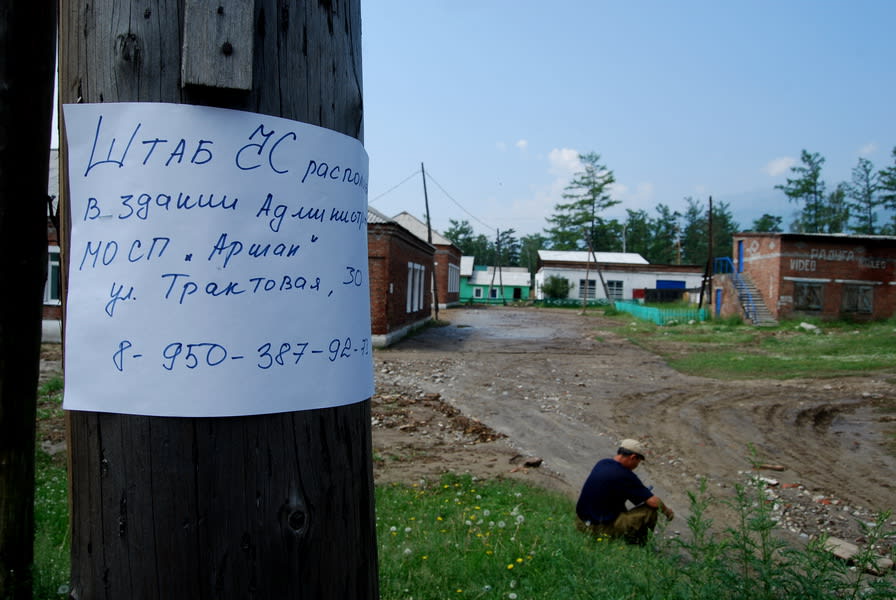 Штаб ЧС распол
в здании Администр
МО СП "Аршан"
ул. Трактовая, 30
8-950-387-92-7
РАДУГА
VIDEO